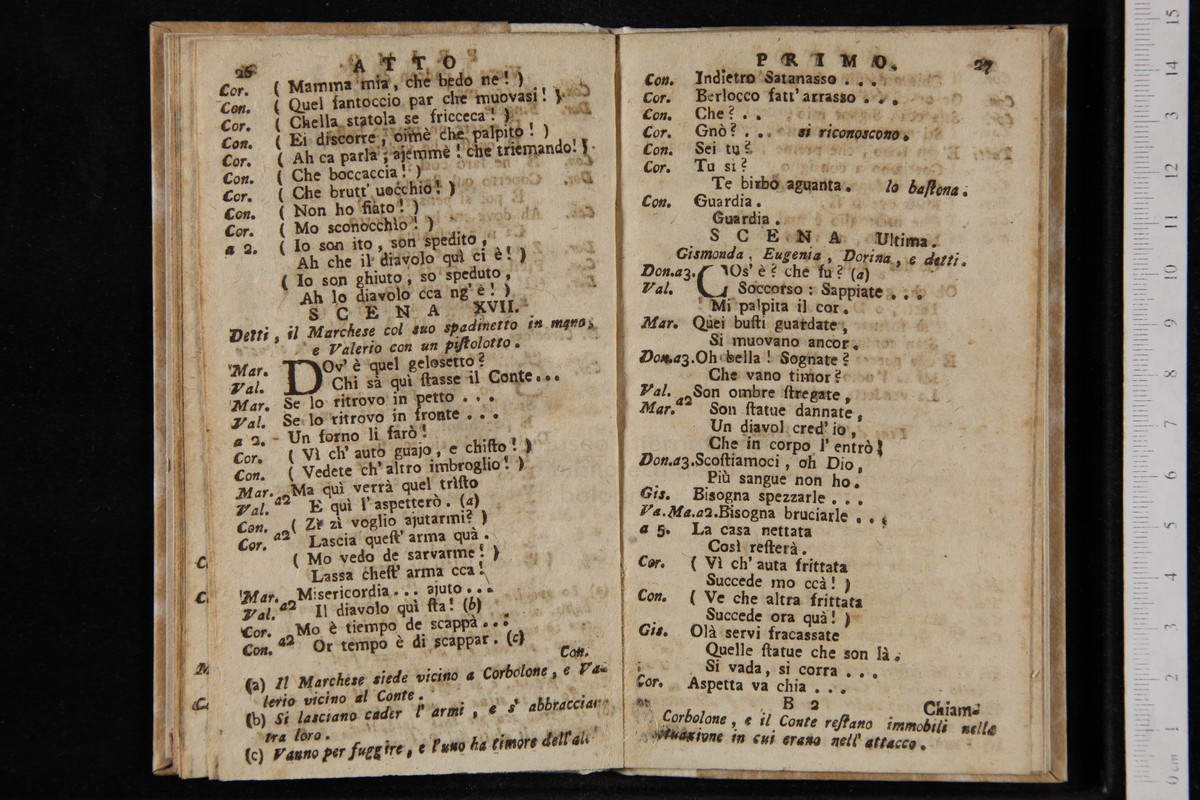 26 ATTO
Cor. ( Mamma mia, che bedo ne! )
Con. ( Quel fantoccio par che muovasi! )
Cor. ( Chella statola se fricceca! )
Con. ( Ei discorre, oimè che palpito! )
Cor. ( Ah ca parla; ajemmè! che triemando! )
Con. ( Che boccaccia! )
Cor. ( Che brutt' uocchio! )
Con. ( Non ho fiato! )
Cor. ( Mo sconocchio! )
a 2. ( Io son ito, son spedito,
Ah che il diavolo quì ci è! )
( Io son ghiuto, so speduto,
Ah lo diavolo cca ng' è! )
SCENA XVII.
Detti, il Marchese col suo spadinetto in mano,
e Valerio con un piſtolotto.
Mar. DOv' è quel gelosetto?
Val. Chi sà quì ſtasse il Conte...
Mar. Se lo ritrovo in petto ...
Val. Se lo ritrovo in fronte ...
a 2. Un forno li farò!
Cor. ( Vì ch' auto guajo, e chiſto! )
Con. ( Vedete ch' altro imbroglio! )
Mar. a2 Ma quì verrà quel trìſto
Val. E quì l' aspetterò. (a)
Con. a2 ( Zi zì voglio ajutarmi? )
Cor. Lascia queſt' arma quà.
( Mo vedo de sarvarme! )
Lassa cheſt' arma cca!
Mar. a2 Misericordia... ajuto...
Val. Il diavolo quì ſta! (b)
Cor. a2 Mo è tiempo de scappà...
Con. Or tempo è di scappar. (c)
Con.
(a) Il Marchese siede vicino a Corbolone, e Va-
lerio vicino al Conte.
(b) Si lasciano cader l' armi, e s' abbracciano
tra loro.
(c) Vanno per fuggire, e l'uno ha timore dell'al-
PRIMO. 27
Con. Indietro Satanasso ...
Cor. Berlocco fatt' arrasso ...
Con. Che? ..
Cor. Gnò? .. si riconoscono.
Con. Sei tu?
Cor. Tu si?
Te birbo aguanta. lo baſtona.
Con. Guardia.
Guardia.
SCENA Ultima.
Gismonda, Eugenia, Dorina, e detti.
Don.a3. COs' è? che fu? (a)
Val. Soccorso: Sappiate ...
Mi palpita il cor.
Mar. Quei buſti guardate,
Si muovano ancor.
Don.a3. Oh bella! Sognate?
Che vano timor?
Val. a2 Son ombre ſtregate,
Mar. Son ſtatue dannate,
Un diavol cred' io,
Che in corpo l' entrò;
Don.a3. Scoſtiamoci, oh Dio,
Più sangue non ho.
Gis. Bisogna spezzarle ...
Va.Ma.a2. Bisogna bruciarle ...
a 5. La casa nettata
Così reſterà.
Cor. ( Vì ch' auta frittata
Succede mo ccà! )
Con. ( Ve che altra frittata
Succede ora quà! )
Gis. Olà servi fracassate
Quelle ſtatue che son là.
Si vada, si corra ...
Cor. Aspetta va chia ...
B 2 Chiam-
Corbolone, e il Conte reſtano immobili nella
situazione in cui erano nell' attacco.